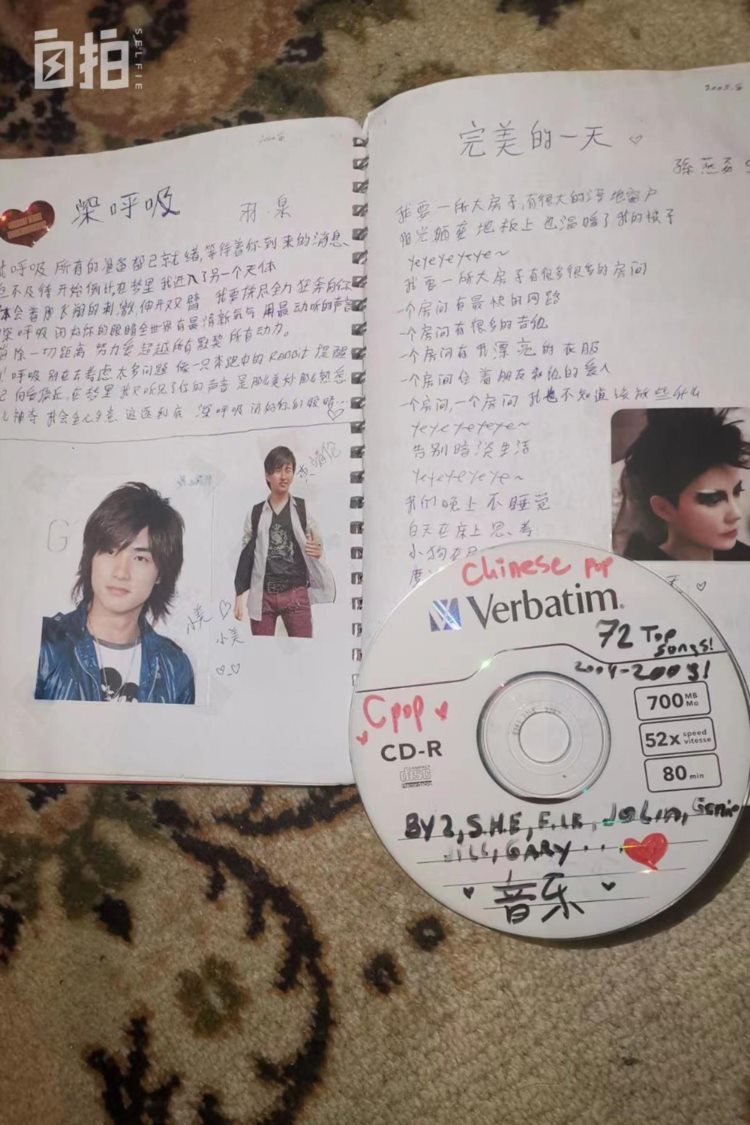 自拍
SELFIE
深呼吸 羽泉
呼吸 所有的准备都已就绪,等待着你到来的消息、
不及待开始倒计 在梦里我进入了另一个天体
体会着展飞翔的刺激,伸开双臂 我要拼尽全力狂奔向你
深呼吸 闭好你的眼睛 全世界有最清新氧气 用最动听的声音
除一切距离 努力要超越所有 所有动力。
呼吸 别在去考虑太多问题 像一只奔跑中的 Rabbit 提醒
自 接近,在梦里 我又听见了你的声音 是那么美妙那么熟悉
神奇 我会全心全意 深呼吸 闭好你的眼睛...
G
小美
小美
黄靖伦
2005.
完美的一天
孫燕姿
我要一所大房子,有很大的落地窗户
阳光洒在地板上 也温暖了我的被子
yeyeyeye~
我要一所大房子 有很多很多的房间
一个房间有最快的网路
一个房间有很多的吉他
一个房间有我漂亮的衣服
一个房间住着朋友和他的爱人
一个房间,一个房间 我也不知道该放些什么
yeyeyeyeye~
告别暗淡生活
yeyeyeyeye~
我们晚上不睡觉
白天在床上思考
小狗
Chinese pop
Verbatim
72 Top
songs!
2004-2009!
Cpop
CD-R
COMPACT
disc
700 MB Mo
52x speed vitesse
80 min
BY2, S.H.E, F.I.R, JoLin, Genie
JILL, GARY...
音乐